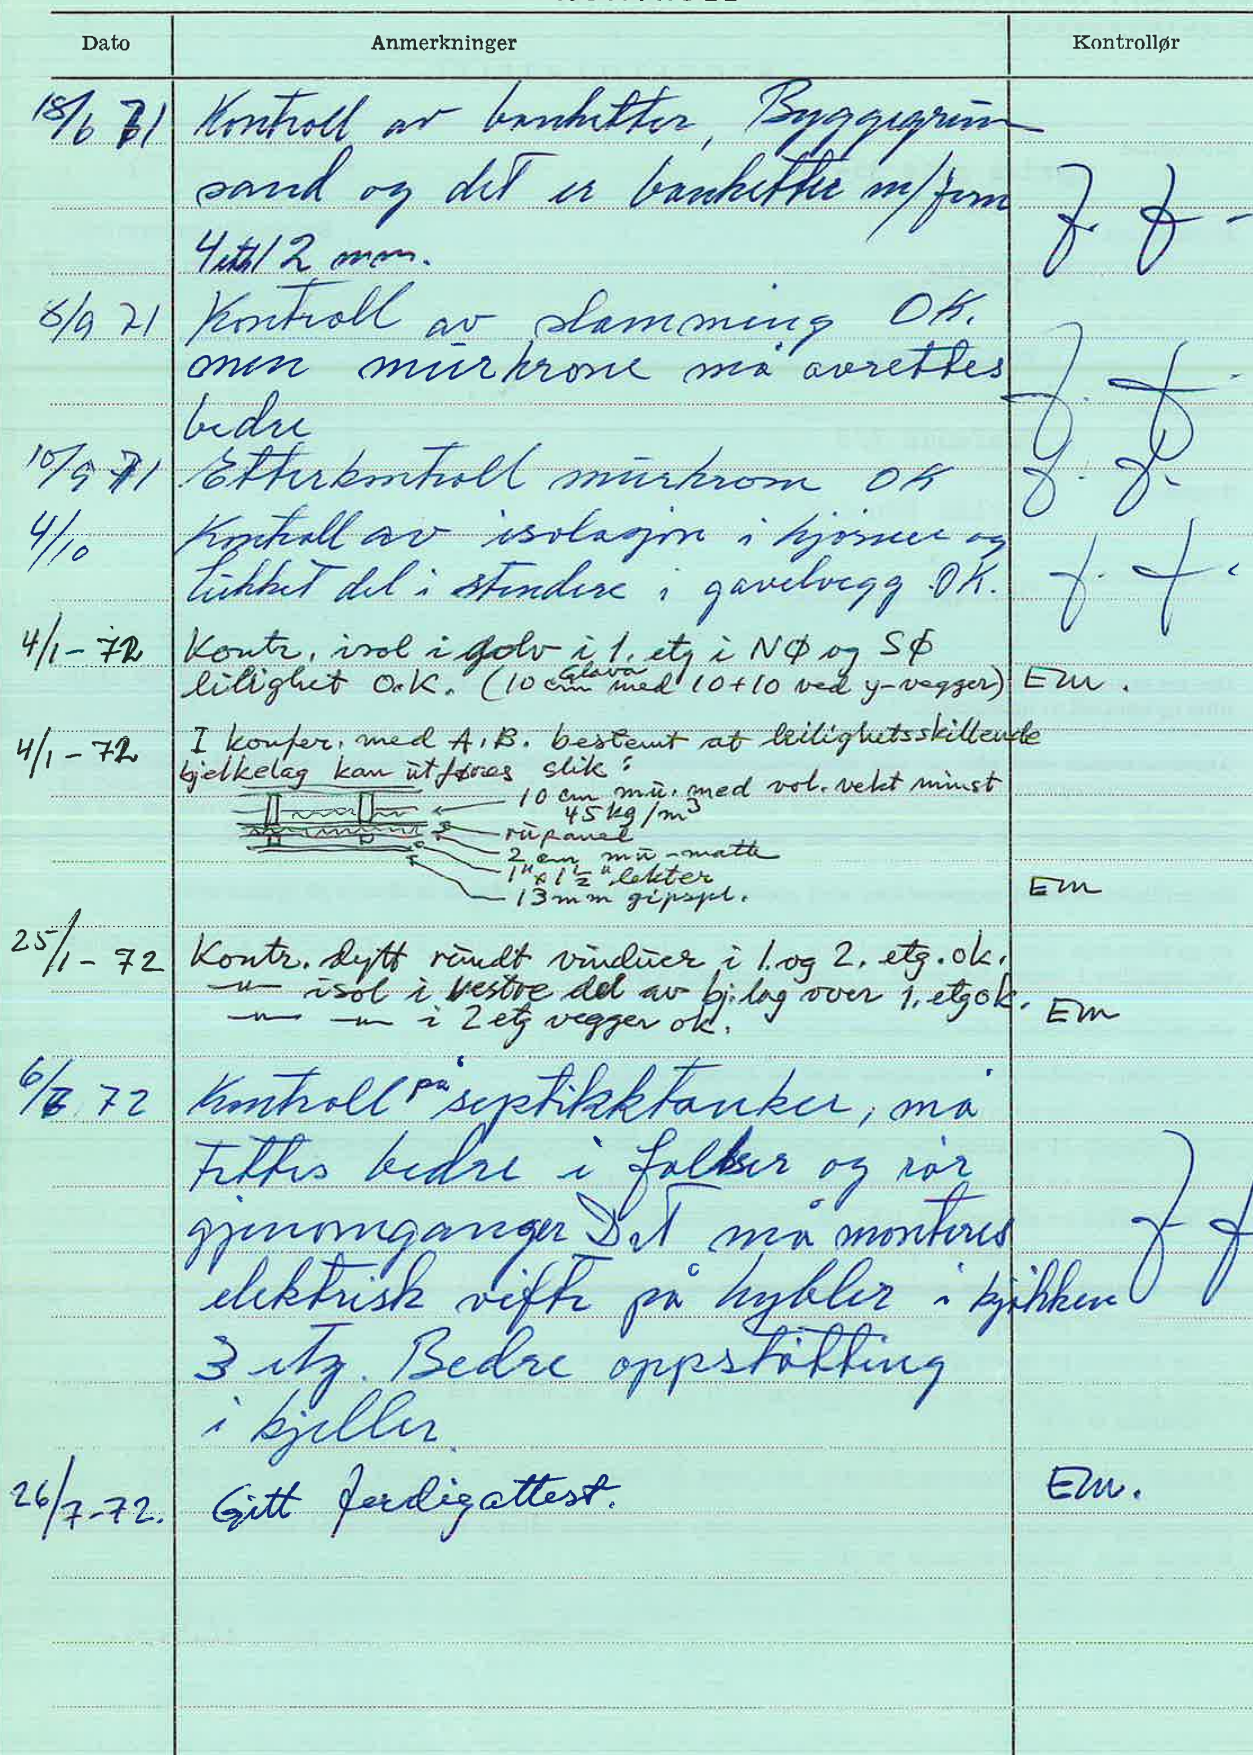 Dato Anmerkninger Kontrollør
18/6 71 Kontroll av banketter, Byggegrunn
sand og det er banketter m/jern
4 stk 12 mm.
8/9 71 Kontroll av slamming OK.
men murkrone må avrettes
bedre
10/9 71 Etterkontroll murkrone OK
4/10 Kontroll av isolasjon i hjørner og
lukket del i stendere i gavelvegg OK.
4/1-72 Kontr. isol i golv i 1. etg i NØ og SØ
lilighet O.K. (10 cm Glava med 10+10 ved y-vegger) Em.
4/1-72 I konfer. med A.B. bestemt at leilighetsskillende
bjelkelag kan utføres slik:
10 cm mu. med vol. vekt minst
45 kg/m³
rupanel
2 cm mu-matte
1" x 1½" lekter
13 mm gipspl.
Em
25/1-72 Kontr. dytt rundt vinduer i 1. og 2. etg. ok.
-"- isol i vestre del av bj.lag over 1. etg ok.
-"- -"- i 2 etg vegger ok. Em
6/6 72 Kontroll på septikktanker, må
tettes bedre i falser og rør
gjenomganger Det må monteres
elektrisk vifte på hybler i kjøkken
3 etg. Bedre oppstøtting
i kjeller.
26/7-72. Gitt ferdigattest. Em.